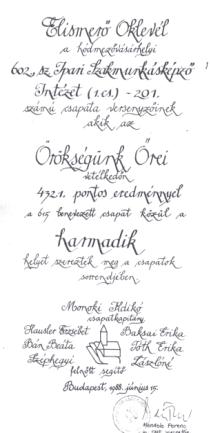 Elismerő Oklevél
a hódmezővásárhelyi
602. sz. Ipari Szakmunkásképző
Intézet (1.cs.) - 291.
számú csapata versenyzőinek
akik az
Örökségünk Őrei
vetélkedőn
4321. pontos eredménnyel
a 615 benevezett csapat közül a
harmadik
helyet szerezték meg a csapatok
sorrendjében.
Monoki Ildikó
csapatkapitány
Hausler Erzsébet Baksai Erika
Bán Beáta Tóth Erika
Széphegyi Lászlóné
felnőtt segítő
Budapest, 1988. június 15.
Ferenc